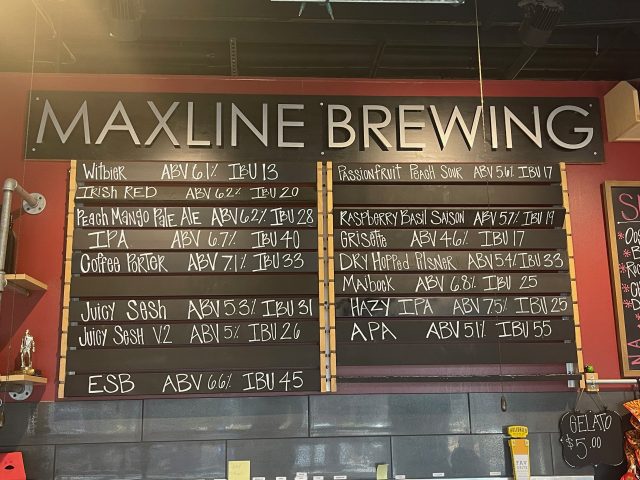 MAXLINE BREWING
Witbier ABV 6.1% IBU 13
Irish Red ABV 6.2% IBU 20
Peach Mango Pale Ale ABV 6.2% IBU 28
IPA ABV 6.7% IBU 40
Coffee Porter ABV 7.1% IBU 33
Juicy Sesh ABV 5.3% IBU 31
Juicy Sesh V2 ABV 5% IBU 26
ESB ABV 6.6% IBU 45
Passionfruit Peach Sour ABV 5.6% IBU 17
Raspberry Basil Saison ABV 5.7% IBU 19
Grisette ABV 4.6% IBU 17
Dry Hopped Pilsner ABV 5.4% IBU 33
Maibock ABV 6.8% IBU 25
Hazy IPA ABV 7.5% IBU 25
APA ABV 5.1% IBU 55
GELATO
$5.00